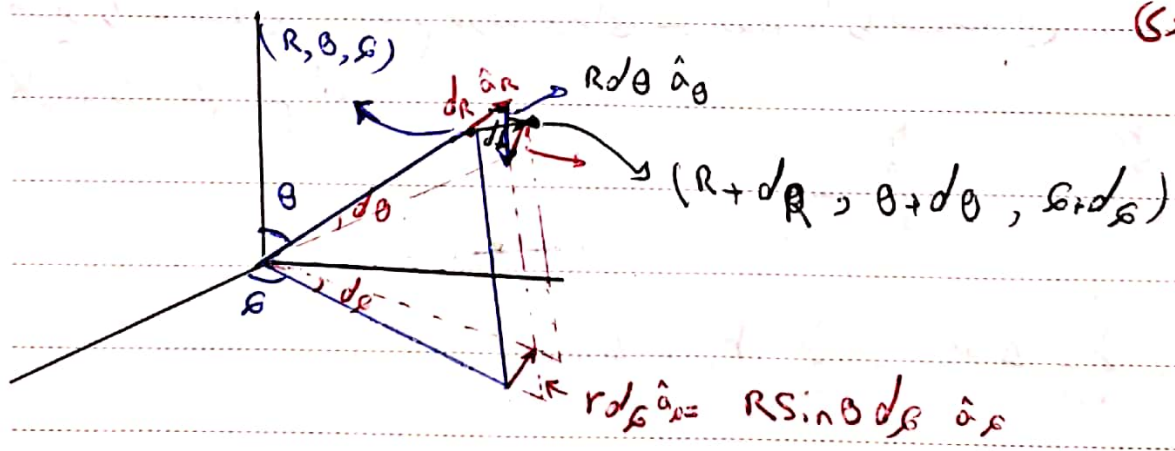 (R, θ, φ)
dR â_R
R dθ â_θ
dl
(R + dR , θ + dθ , φ + dφ)
θ
dθ
φ
dφ
r dφ â_φ = R Sin θ dφ â_φ